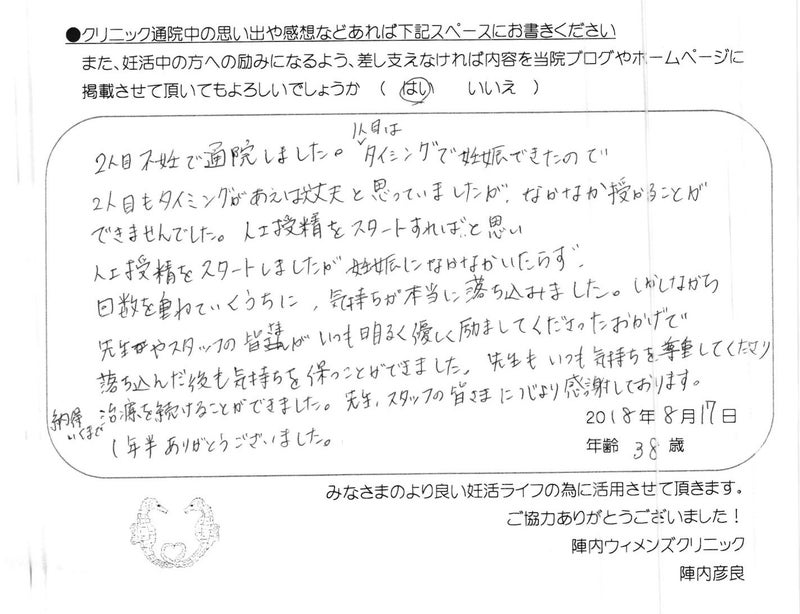 ●クリニック通院中の思い出や感想などあれば下記スペースにお書きください
また、妊活中の方への励みになるよう、差し支えなければ内容を当院ブログやホームページに
掲載させて頂いてもよろしいでしょうか （ はい いいえ ）
1人目は
2人目不妊で通院しました。タイミングで妊娠できたので
2人目もタイミングがあえば大丈夫と思っていましたが、なかなか授かることが
できませんでした。人工授精をスタートすればと思い
人工授精をスタートしましたが妊娠になかなかいたらず、
回数を重ねていくうちに、気持ちが本当に落ち込みました。しかしながら
先生やスタッフの皆様がいつも明るく優しく励ましてくださったおかげで
落ち込んだ後も気持ちを保つことができました。先生もいつも気持ちを尊重してくださり
納得いくまで
治療を続けることができました。先生、スタッフの皆さまに心より感謝しております。
1年半ありがとうございました。
2018年8月17日
年齢 38歳
みなさまのより良い妊活ライフの為に活用させて頂きます。
ご協力ありがとうございました！
陣内ウィメンズクリニック
陣内彦良